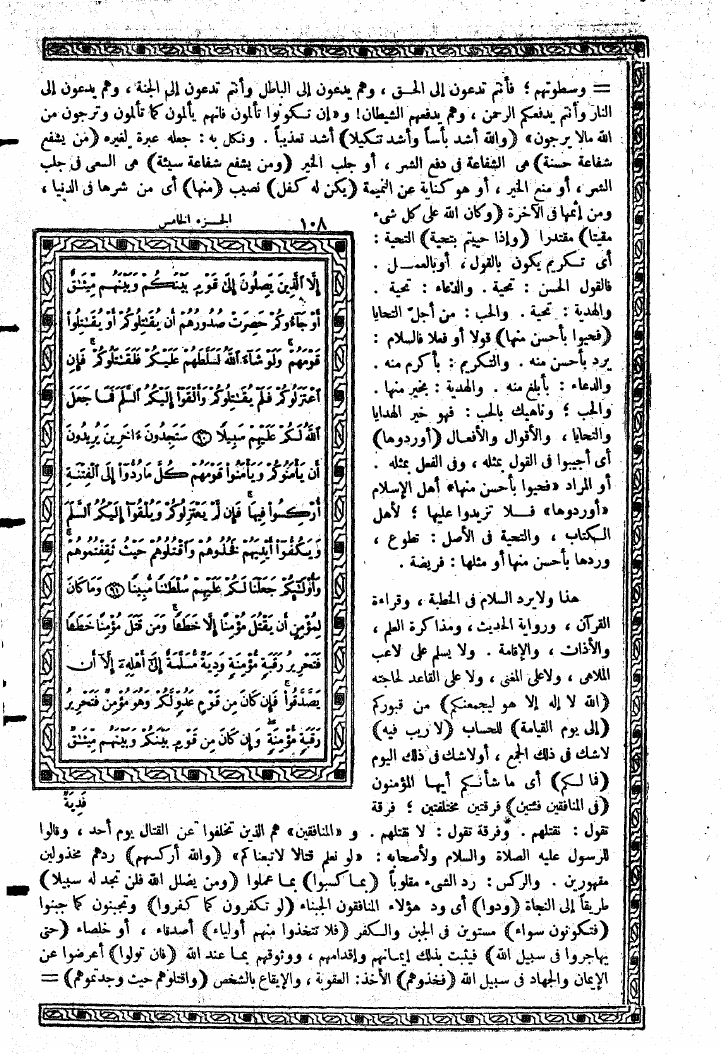 = وسطوتهم ؛ فأنتم تدعون إلى الحق ، وهم يدعون إلى الباطل وأنتم تدعون إلى الجنة ، وهم يدعون إلى
النار وأنتم يدفعكم الرحمن ، وهم يدفعهم الشيطان! و «إن تكونوا تألمون فإنهم يألمون كما تألمون وترجون من
الله مالا يرجون» (والله أشد بأساً وأشد تنكيلا) أشد تعذيباً . ونكل به : جعله عبرة لغيره (من يشفع
شفاعة حسنة) هى الشفاعة فى دفع الشر ، أو جلب الخير (ومن يشفع شفاعة سيئة) هى السعى فى جلب
الشر ، أو منع الخير ، أو هو كناية عن النميمة (يكن له كفل) نصيب (منها) أى من شرها فى الدنيا ،
ومن إثمها فى الآخرة (وكان الله على كل شىء
مقيتا) مقتدرا (وإذا حييتم بتحية) التحية :
أى تكريم يكون بالقول ، أو بالعمل .
فالقول الحسن : تحية . والدعاء : تحية .
والهدية : تحية . والحب : من أجل التحايا
(فحيوا بأحسن منها) قولا أو فعلا فالسلام :
يرد بأحسن منه . والتكريم : بأكرم منه .
والدعاء : بأبلغ منه . والهدية : بخير منها .
والحب ؛ وناهيك بالحب : فهو خير الهدايا
والتحايا ، والأقوال والأفعال (أوردوها)
أى أجيبوا فى القول بمثله ، وفى الفعل بمثله .
أو المراد «فحيوا بأحسن منها» أهل الإسلام
«أوردوها» فلا تزيدوا عليها ؛ لأهل
الكتاب ، والتحية فى الأصل : تطوع ،
وردها بأحسن منها أو مثلها : فريضة .
هذا ولا يرد السلام فى الخطبة ، وقراءة
القرآن ، ورواية الحديث ، ومذاكرة العلم ،
والأذان ، والإقامة . ولا يسلم على لاعب
الملاهى ، ولا على المغنى ، ولا على القاعد لحاجته
(الله لا إله إلا هو ليجمعنكم) من قبوركم
(إلى يوم القيامة) للحساب (لا ريب فيه)
لاشك فى ذلك الجمع ، أولاشك فى ذلك اليوم
(فما لكم) أى ما شأنكم أيها المؤمنون
(فى المنافقين فئتين) فرقتين مختلفتين ؛ فرقة
تقول : نقتلهم . وفرقة تقول : لا نقتلهم . و «المنافقين» هم الذين تخلفوا عن القتال يوم أحد ، وقالوا
للرسول عليه الصلاة والسلام ولأصحابه : «لو نعلم قتالا لاتبعناكم» (والله أركسهم) ردهم مخذولين
مقهورين . والركس : رد الشىء مقلوباً (بما كسبوا) بما عملوا (ومن يضلل الله فلن تجد له سبيلا)
طريقاً إلى النجاة (ودوا) أى ود هؤلاء المنافقون الجبناء (لو تكفرون كما كفروا) وتجبنون كما جبنوا
(فتكونون سواء) مستوين فى الجبن والكفر (فلا تتخذوا منهم أولياء) أصدقاء ، أو خلصاء (حتى
يهاجروا فى سبيل الله) فيثبت بذلك إيمانهم وإقدامهم ، ووثوقهم بما عند الله (فإن تولوا) أعرضوا عن
الإيمان والجهاد فى سبيل الله (فخذوهم) الأخذ : العقوبة ، والإيقاع بالشخص (واقتلوهم حيث وجدتموهم) =
١٠٨ الجزء الخامس
إِلَّا ٱلَّذِينَ يَصِلُونَ إِلَىٰ قَوْمٍ بَيْنَكُمْ وَبَيْنَهُم مِّيثَٰقٌ
أَوْ جَآءُوكُمْ حَصِرَتْ صُدُورُهُمْ أَن يُقَٰتِلُوكُمْ أَوْ يُقَٰتِلُوا۟
قَوْمَهُمْ ۚ وَلَوْ شَآءَ ٱللَّهُ لَسَلَّطَهُمْ عَلَيْكُمْ فَلَقَٰتَلُوكُمْ ۚ فَإِنِ
ٱعْتَزَلُوكُمْ فَلَمْ يُقَٰتِلُوكُمْ وَأَلْقَوْا۟ إِلَيْكُمُ ٱلسَّلَمَ فَمَا جَعَلَ
ٱللَّهُ لَكُمْ عَلَيْهِمْ سَبِيلًا ٩٠ سَتَجِدُونَ ءَاخَرِينَ يُرِيدُونَ
أَن يَأْمَنُوكُمْ وَيَأْمَنُوا۟ قَوْمَهُمْ كُلَّ مَا رُدُّوٓا۟ إِلَى ٱلْفِتْنَةِ
أُرْكِسُوا۟ فِيهَا ۚ فَإِن لَّمْ يَعْتَزِلُوكُمْ وَيُلْقُوٓا۟ إِلَيْكُمُ ٱلسَّلَمَ
وَيَكُفُّوٓا۟ أَيْدِيَهُمْ فَخُذُوهُمْ وَٱقْتُلُوهُمْ حَيْثُ ثَقِفْتُمُوهُمْ ۚ
وَأُو۟لَٰٓئِكُمْ جَعَلْنَا لَكُمْ عَلَيْهِمْ سُلْطَٰنًا مُّبِينًا ٩١ وَمَا كَانَ
لِمُؤْمِنٍ أَن يَقْتُلَ مُؤْمِنًا إِلَّا خَطَـًٔا ۚ وَمَن قَتَلَ مُؤْمِنًا خَطَـًٔا
فَتَحْرِيرُ رَقَبَةٍ مُّؤْمِنَةٍ وَدِيَةٌ مُّسَلَّمَةٌ إِلَىٰٓ أَهْلِهِۦٓ إِلَّآ أَن
يَصَّدَّقُوا۟ ۚ فَإِن كَانَ مِن قَوْمٍ عَدُوٍّ لَّكُمْ وَهُوَ مُؤْمِنٌ فَتَحْرِيرُ
رَقَبَةٍ مُّؤْمِنَةٍ ۖ وَإِن كَانَ مِن قَوْمٍ بَيْنَكُمْ وَبَيْنَهُم مِّيثَٰقٌ
فَدِيَةٌ